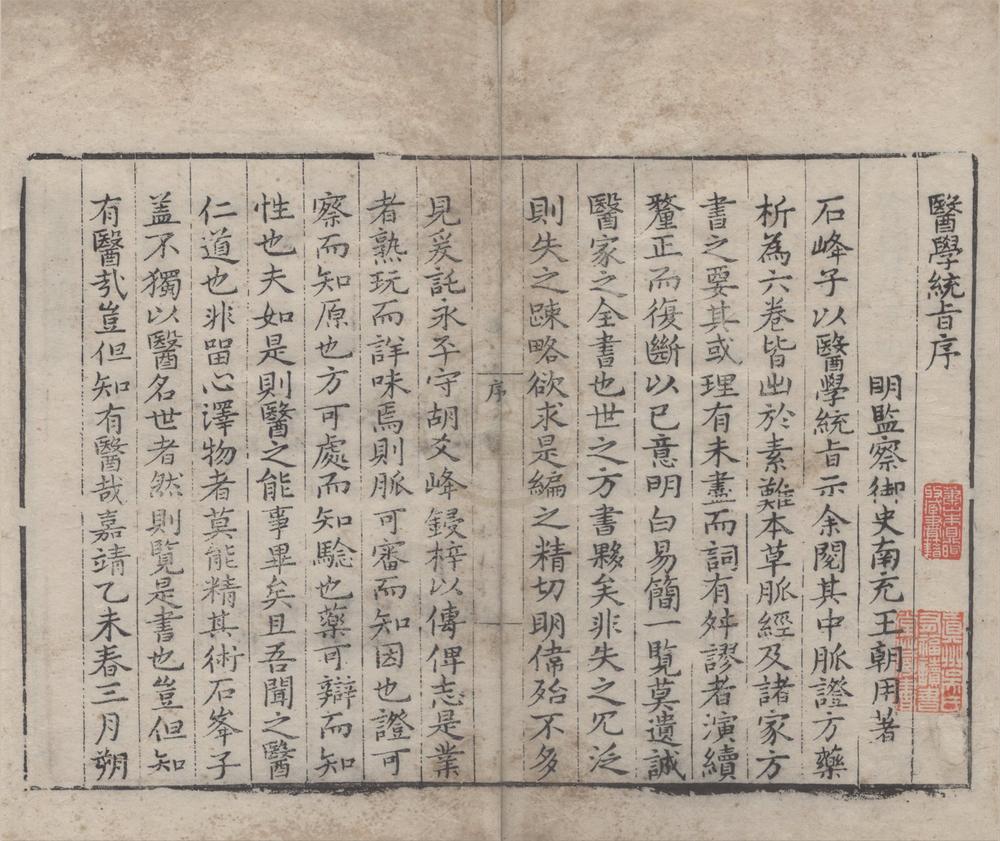 醫學統旨序
明監察御史南充王朝用著
石峰子以醫學統旨示余閱其中脈證方藥
析為六卷皆出於素難本草脈經及諸家方
書之要其或理有未盡而詞有舛謬者演續
釐正而復斷以已意明白易簡一覽莫遺誠
醫家之全書也世之方書夥矣非失之冗泛
則失之踈略欲求是編之精切明偹殆不多
序
見爰託永平守胡爻峰鋟梓以傳俾志是業
者熟玩而詳味焉則脈可審而知因也證可
察而知原也方可處而知驗也藥可辯而知
性也夫如是則醫之能事畢矣且吾聞之醫
仁道也非畱心澤物者莫能精其術石峯子
盖不獨以醫名世者然則覽是書也豈但知
有醫哉豈但知有醫哉嘉靖乙未春三月朔